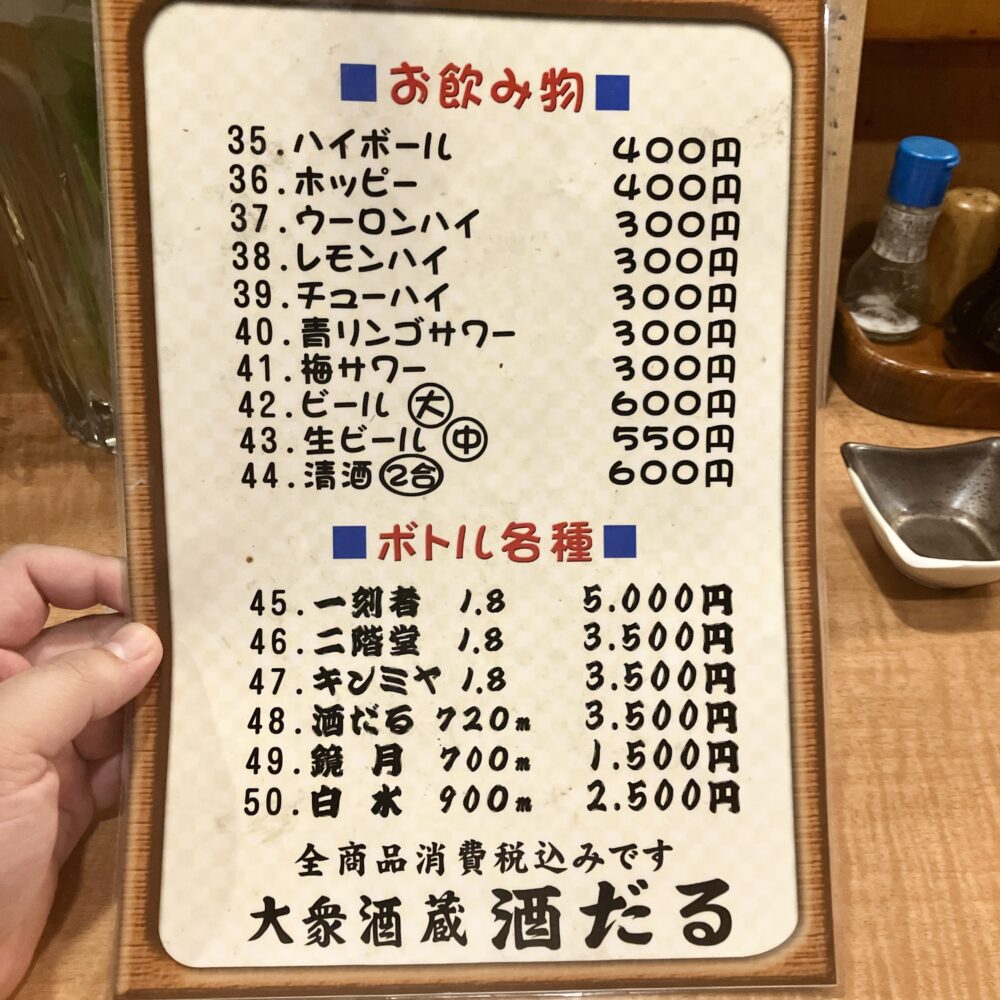 ■お飲み物■
35.ハイボール 400円
36.ホッピー 400円
37.ウーロンハイ 300円
38.レモンハイ 300円
39.チューハイ 300円
40.青リンゴサワー 300円
41.梅サワー 300円
42.ビール 大 600円
43.生ビール 中 550円
44.清酒 2合 600円
■ボトル各種■
45.一刻者 1.8 5.000円
46.二階堂 1.8 3.500円
47.キンミヤ 1.8 3.500円
48.酒だる 720m 3.500円
49.鏡月 700m 1.500円
50.白水 900m 2.500円
全商品消費税込みです
大衆酒蔵 酒だる